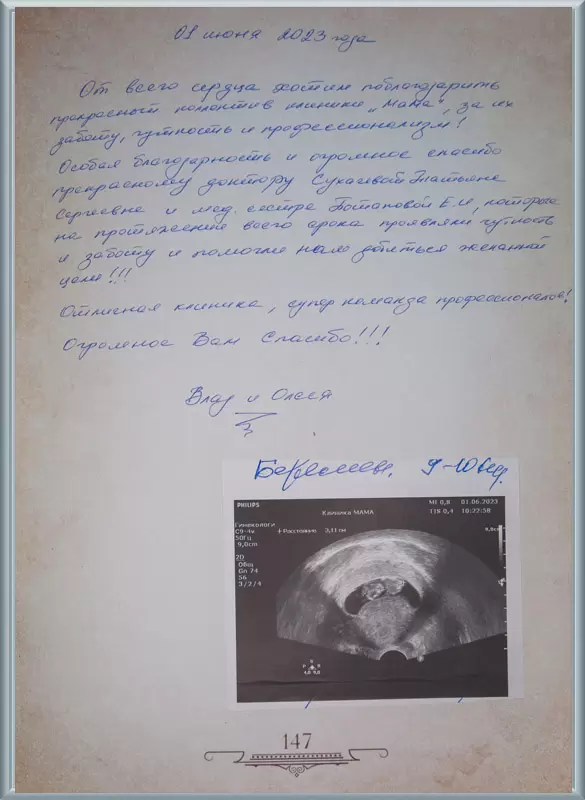 01 июня 2023 года
От всего сердца хотим поблагодарить
прекрасный коллектив клиники „Мама", за их
заботу, чуткость и профессионализм!
Особая благодарность и огромное спасибо
прекрасному доктору Сукасевой Татьяне
Сергеевне и мед. сестре Потаповой Е.И, которые
на протяжении всего срока проявляли чуткость
и заботу и помогли нам добиться желанной
цели!!!
Отличная клиника, супер команда профессионалов!
Огромное Вам Спасибо!!!
Влад и Олеся
Беремен. 9-10 нед.
PHILIPS
MI 0,8 01.06.2023
Клиника МАМА
TIS 0,4 10:22:58
Гинекологи
C9-4v
50Гц
9,0cm
+ Расстояние 3,11 см
9,0см
2D
Общ
Gn 74
56
3/2/4
4.0 9.0
147